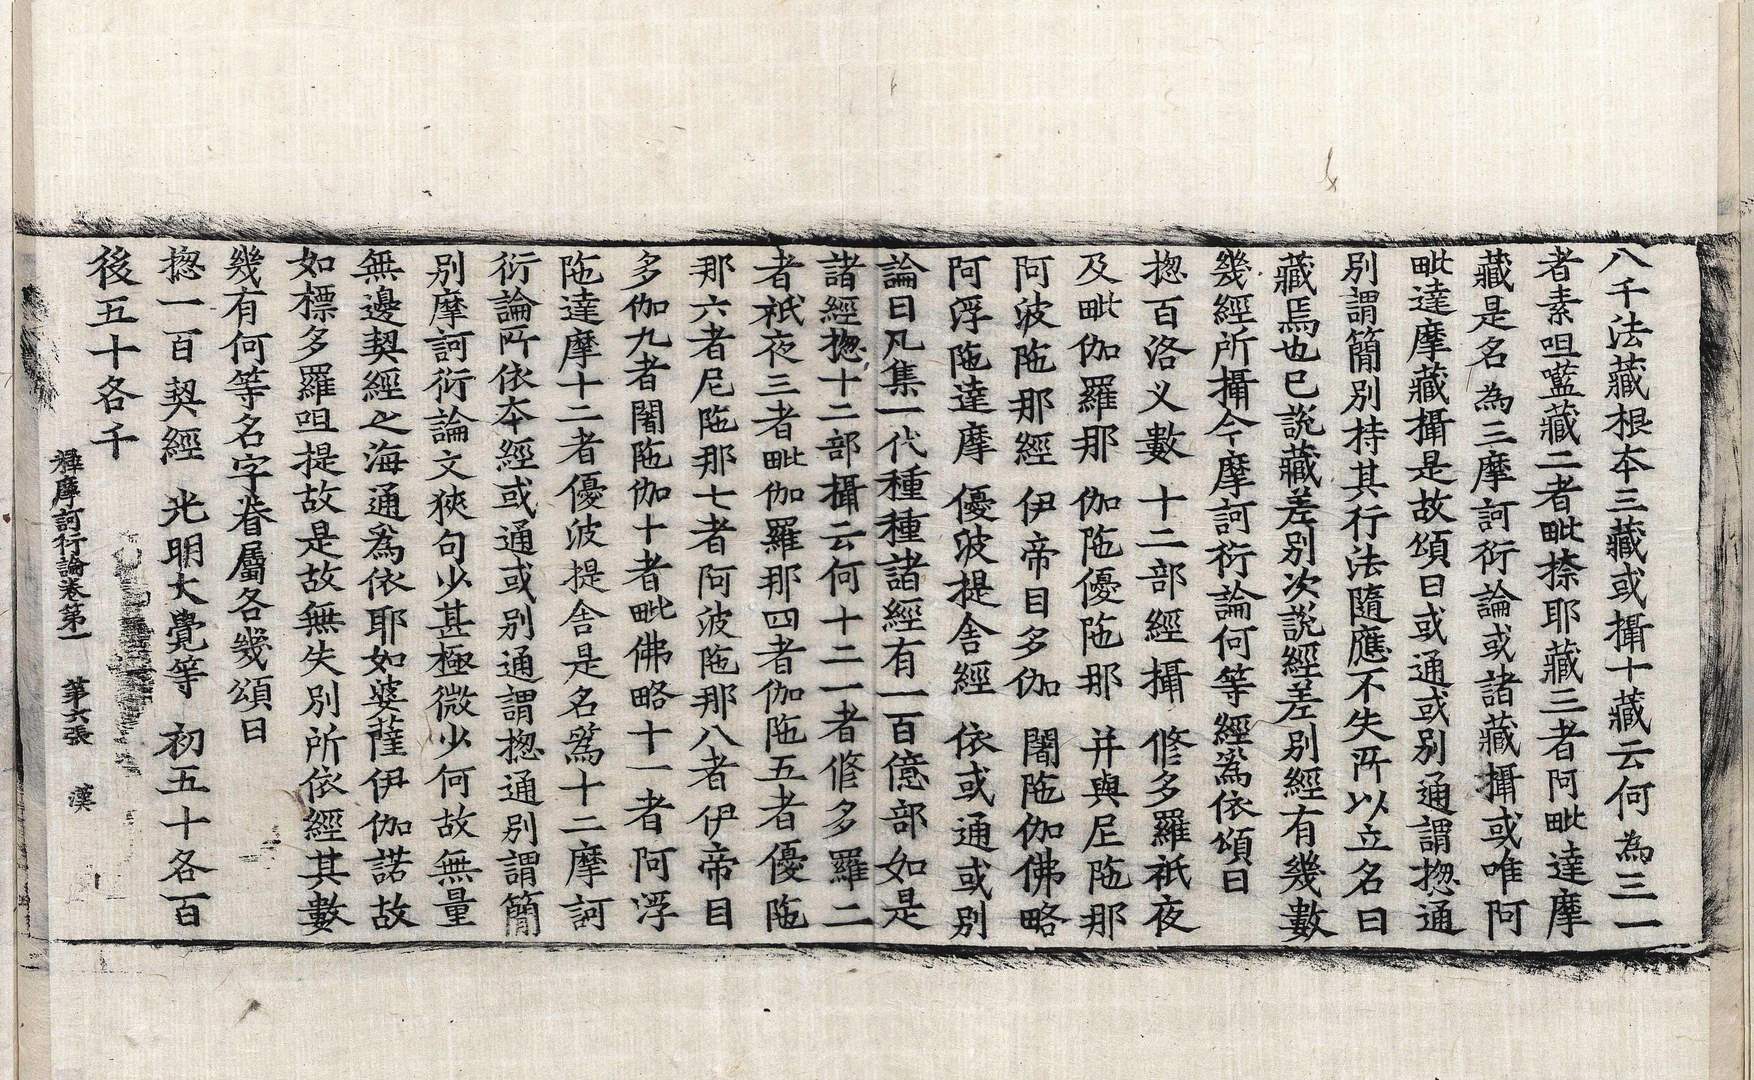 八千法藏根本三藏或攝十藏云何為三一
者素呾囕藏二者毗捺耶藏三者阿毗達摩
藏是名為三摩訶衍論或諸藏攝或唯阿
毗達摩藏攝是故頌曰或通或別通謂揔通
別謂簡別持其行法隨應不失所以立名曰
藏焉也已說藏差別次說經差別經有幾數
幾經所攝今摩訶衍論何等經為依頌曰
揔百洛叉數　十二部經攝　修多羅祇夜
及毗伽羅那　伽陁優陁那　并與尼陁那
阿波陁那經　伊帝目多伽　闍陁伽佛略
阿浮陁達摩　優波提舍經　依或通或別
論曰凡集一代種種諸經有一百億部如是
諸經揔十二部攝云何十二一者修多羅二
者祇夜三者毗伽羅那四者伽陁五者優陁
那六者尼陁那七者阿波陁那八者伊帝目
多伽九者闍陁伽十者毗佛略十一者阿浮
陁達摩十二者優波提舍是名為十二摩訶
衍論所依本經或通或別通謂揔通別謂簡
別摩訶衍論文狹句少甚極微少何故無量
無邊契經之海通為依耶如婆薩伊伽諾故
如標多羅呾提故是故無失別所依經其數
幾有何等名字眷屬各幾頌曰
揔一百契經　光明大覺等　初五十各百
後五十各千
釋摩訶衍論卷第一　第六張　漢